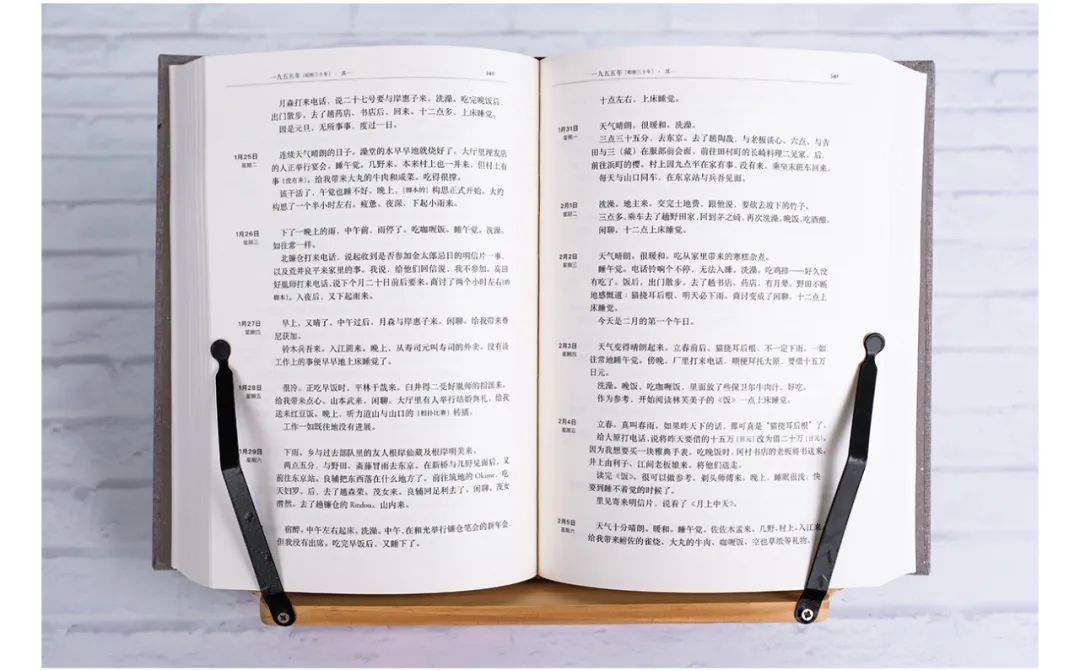 一九五五年〔昭和三十年〕·其一
340
月森打来电话，说二十七号要与岸惠子来。洗澡。吃完晚饭后，
出门散步。去了趟药店、书店后，回来。十二点多，上床睡觉。
因是元旦，无所事事，度过一日。
1月25日
星期二
连续天气晴朗的日子。澡堂的水早早地就烧好了。大厅里理发店
的人正举行宴会。睡午觉。几野来。本来村上也一并来，但村上有
事〔没有来〕。给我带来大丸的牛肉和咸菜。吃得很撑。
该干活了，午觉也睡不好。晚上，〔脚本的〕构思正式开始。大约
构思了一个半小时左右。疲惫。夜深，下起小雨来。
1月26日
星期三
下了一晚上的雨，中午前，雨停了。吃咖喱饭。睡午觉。洗澡。
如往常一样。
北镰仓打来电话，说起收到是否参加金太郎忌日的明信片一事，
以及荒井良平来家里的事。我说，给他们回信说，我不参加。高田
好胤师打来电话，说下个月二十日前后要来。商讨了两个小时左右〔的
脚本〕。入夜后，又下起雨来。
1月27日
星期四
早上，又晴了。中午过后，月森与岸惠子来。闲聊。给我带来轩
尼获加。
铃木兵吾来。入江圆来。晚上，从寿司元叫寿司的外卖。没有谈
工作上的事便早早地上床睡觉了。
1月28日
星期五
很冷。正吃早饭时，平林干哉来。白井得二受好胤师的指派来。
给我带来点心。山本武来。闲聊。大厅里有人举行结婚典礼，给我
送来红豆饭。晚上，听力道山与山口的〔相扑比赛〕转播。
工作一如既往地没有进展。
1月29日
星期六
下雨。乡与过去部队里的友人根岸仙藏及根岸明美来。
两点五分，与野田、斋藤冒雨去东京。在新桥与几野见面后，又
前往东京站。良辅把东西落在什么地方了。前往筑地的Okame，吃
天妇罗。后，去了趟森荣。茂女来。良辅回足利去了，闲聊。茂女
潸然。去了趟镰仓的Rindou。山内来。
宿醉。中午左右起床。洗澡。中午，在和光举行镰仓笔会的新年会，
但我没有出席。吃完早饭后，又睡下了。
一九五五年〔昭和三十年〕·其一
341
十点左右，上床睡觉。
1月31日
星期一
天气晴朗，很暖和。洗澡。
三点三十五分，去东京。去了趟陶哉，与老板谈心。六点，与吉
田与三〔藏〕在服部前会面，前往田村町的长崎料理二见家，后，
前往浜町的樱。村上因九点半在家有事，没有来。乘坐末班车回来。
每天与山口同车，在东京站与兵吾见面。
2月1日
星期二
洗澡。地主来。交完土地费，跟他说，要砍去坡下的竹子。
三点多，乘车去了趟野田家，回到茅之崎，再次洗澡，晚饭，吃酒酿。
闲聊。十二点多上床睡觉。
2月2日
星期三
天气晴朗，很暖和。吃从家里带来的寒糕杂煮。
睡午觉。电话铃响个不停，无法入睡。洗澡，吃鸡排——好久没
有吃了。饭后，出门散步。去了趟书店、药店，有月晕，野田不断
地感慨道：猫挠耳后根，明天必下雨。商讨变成了闲聊，十二点上
床睡觉。
今天是二月的第一个午日。
2月3日
星期四
天气变得晴朗起来。立春前后，猫挠耳后根，不一定下雨。一如
往常地睡午觉。傍晚，厂里打来电话，顺便拜托大原，要借十五万
日元。
洗澡。晚饭，吃咖喱饭，里面放了些保卫尔牛肉汁，好吃。
作为参考，开始阅读林芙美子的《饭》一点上床睡觉。
2月4日
星期五
立春。真叫春雨。如果昨天下的话，那可真是“猫挠耳后根”了。
给大原打电话，说将昨天要借的十五万〔日元〕改为借二十万〔日元〕。
因为我想要买一块雅典手表。吃晚饭时，冈村书店的老板将书送来。
井上由利子、江间老板娘来。将他们送走。
读完《饭》。很可以做参考。剃头师傅来。晚上，睡眠很浅。快
要到睡不着觉的时候了。
里见寄来明信片，说看了《月上中天》。
2月5日
星期六
天气十分晴朗。暖和。睡午觉。佐佐木孟来。几野、村上、入江来。
给我带来鲋佐的雀烧、大丸的牛肉、咖喱饭、空也草纸等礼物。